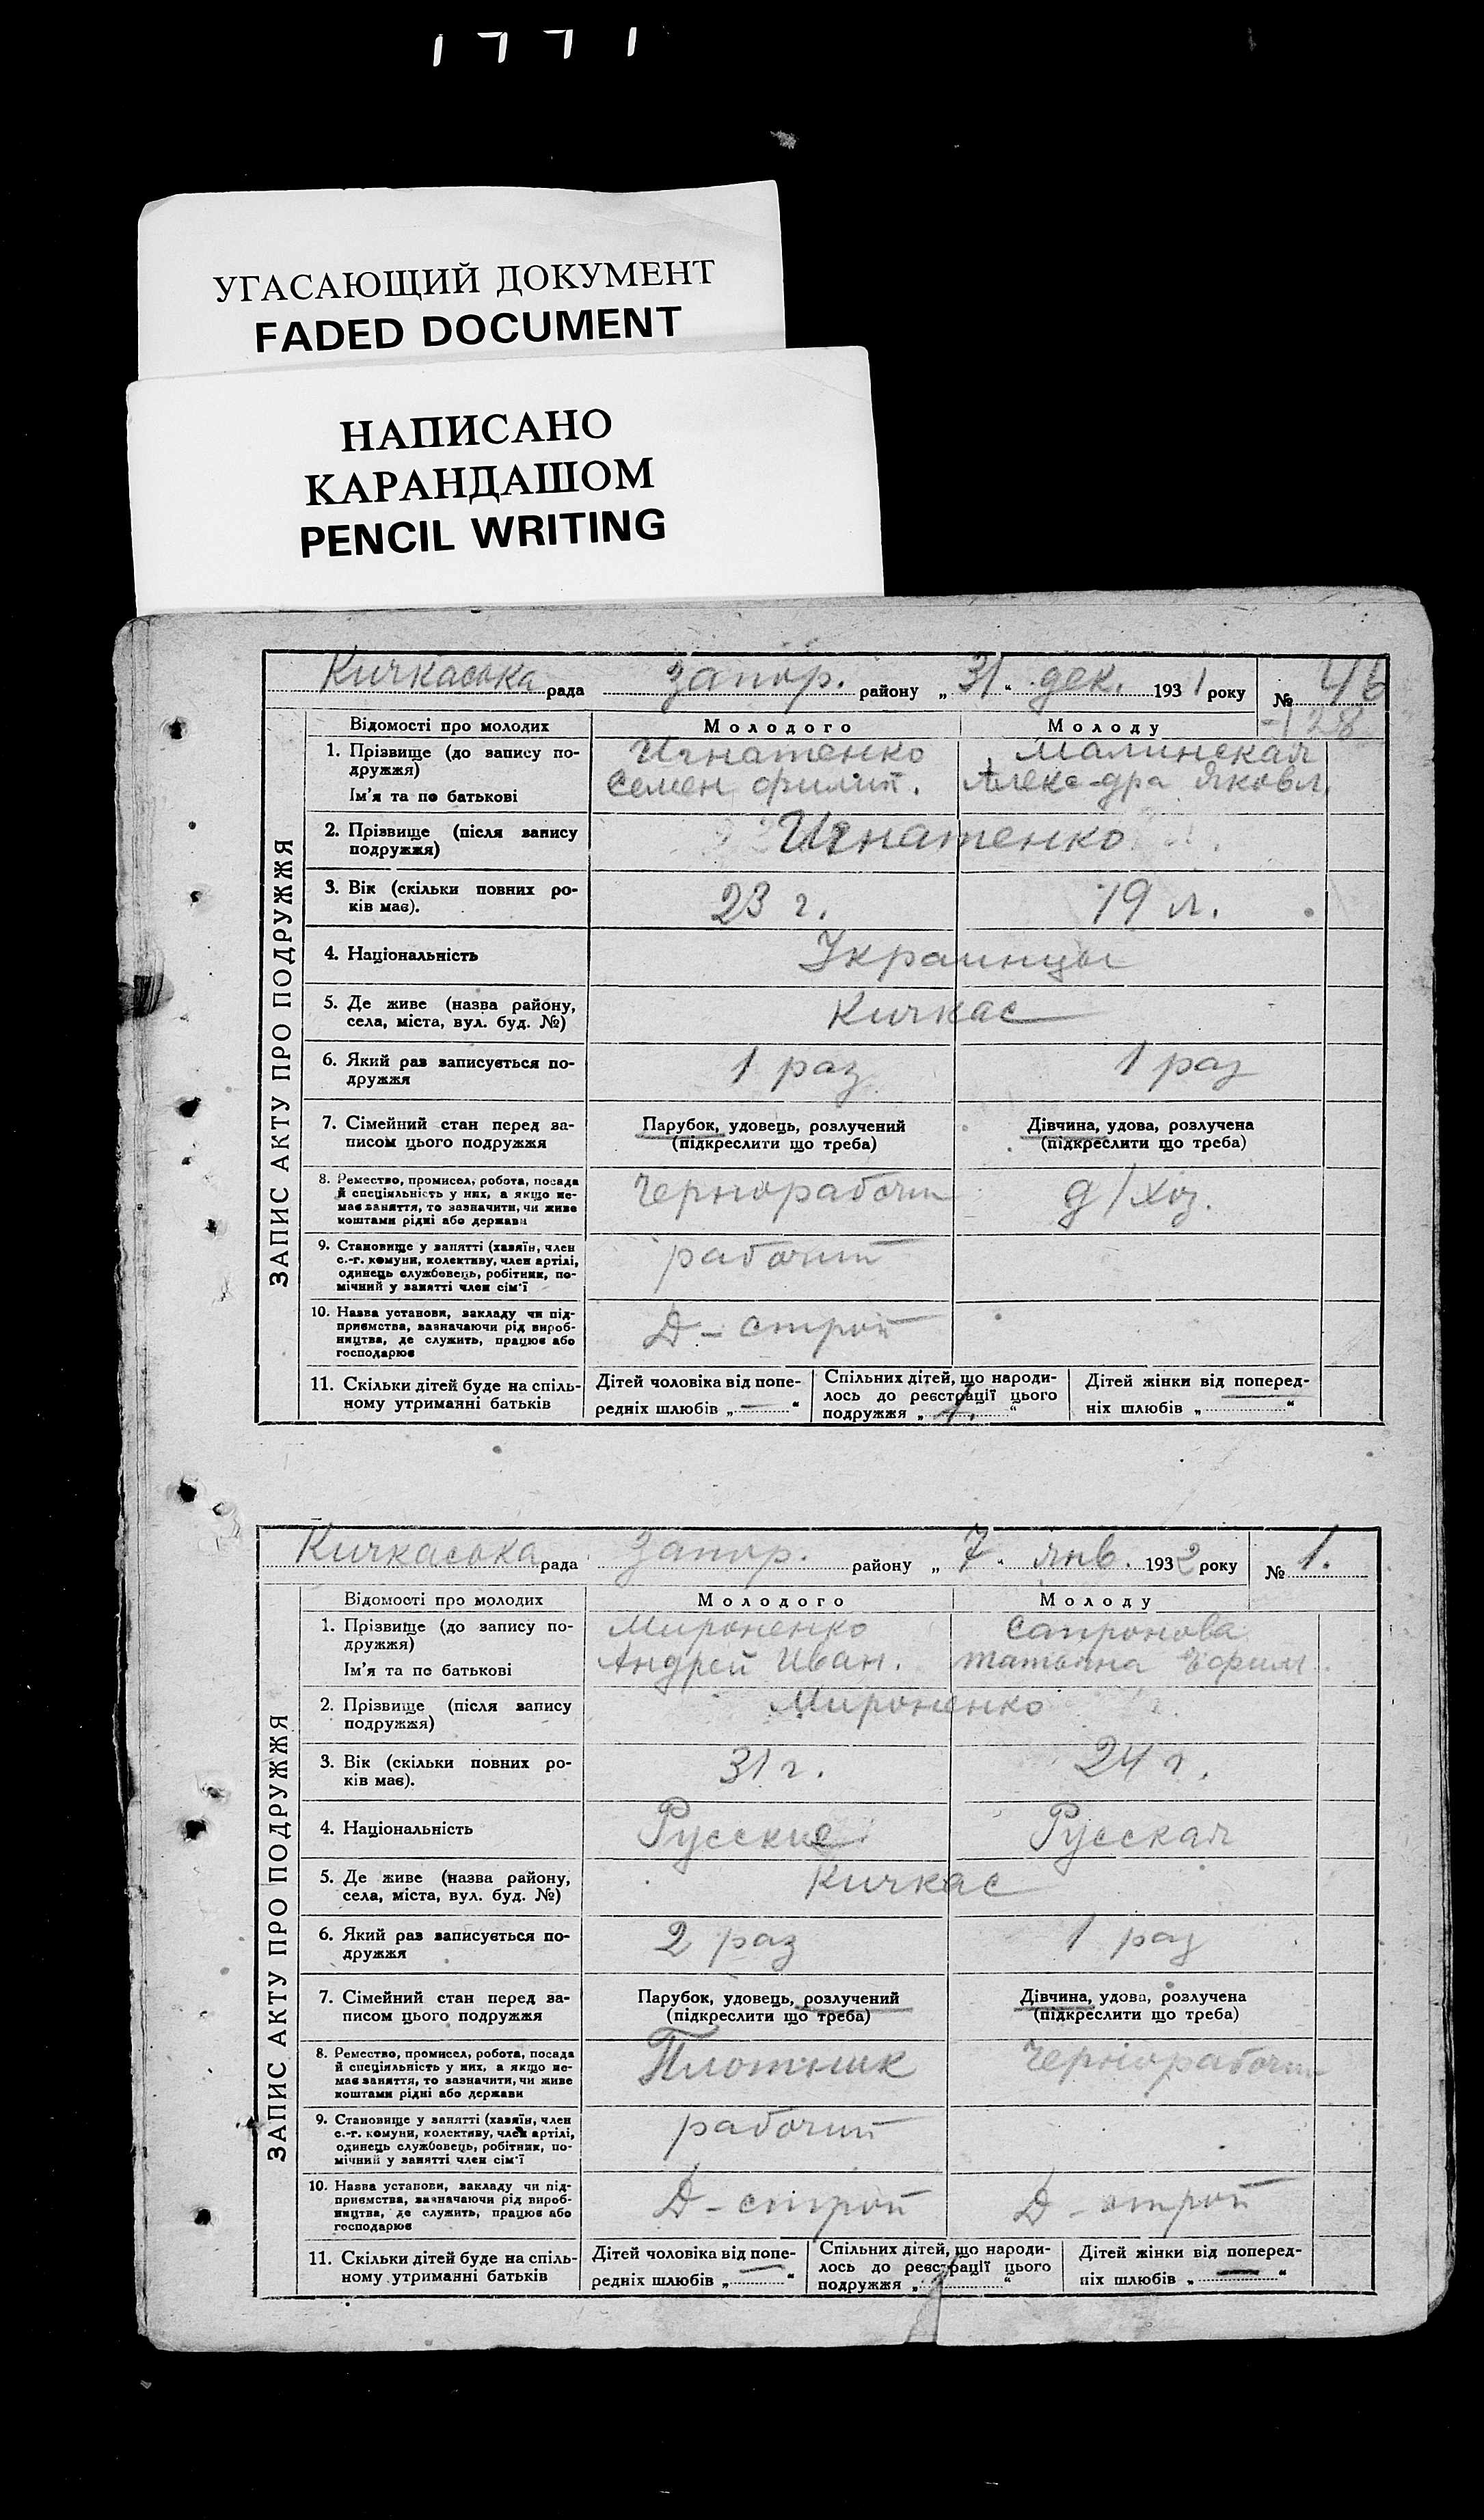 1771
УГАСАЮЩИЙ ДОКУМЕНТ
FADED DOCUMENT
НАПИСАНО
КАРАНДАШОМ
PENCIL WRITING
ЗАПИС АКТУ ПРО ПОДРУЖЖЯ
Кичкаська рада Запор. району „31“ дек. 1931 року № 46
128
Відомості про молодих Молодого Молоду
1. Прізвище (до запису по- Игнатенко Малинская
дружжя)
Ім'я та по батькові Семен Филип. Алекс-дра Яковл.
2. Прізвище (після запису Игнатенко
подружжя)
3. Вік (скільки повних ро- 23 г. 19 л.
ків має).
4. Національність Украинцы
5. Де живе (назва району, Кичкас
села, міста, вул. буд. №)
6. Який раз записується по- 1 раз 1 раз
дружжя
7. Сімейний стан перед за- Парубок, удовець, розлучений Дівчина, удова, розлучена
писом цього подружжя (підкреслити що треба) (підкреслити що треба)
8. Ремество, промисел, робота, посада Чернорабочи д/хоз.
й спеціяльність у них, а якщо не-
має заняття, то зазначити, чи живе
коштами рідні або держави
9. Становище у занятті (хазяїн, член рабочий
с.-г. комуни, колективу, член артілі,
одинець службовець, робітник, по-
мічний у занятті член сім'ї
10. Назва установи, закладу чи під- Д-строй
приємства, зазначаючи рід вироб-
ництва, де служить, працює або
господарює
11. Скільки дітей буде на спіль- Дітей чоловіка від попе- Спільних дітей, що народи- Дітей жінки від поперед-
ному утриманні батьків редніх шлюбів „—“ лось до реєстрації цього ніх шлюбів „ “
подружжя „1.“
ЗАПИС АКТУ ПРО ПОДРУЖЖЯ
Кичкаська рада Запор. району „7. янв. 1932 року № 1.
Відомості про молодих Молодого Молоду
1. Прізвище (до запису по- Мироненко Сапронова
дружжя)
Ім'я та по батькові Андрей Иван. Татьяна Ефим.
2. Прізвище (після запису Мироненко
подружжя)
3. Вік (скільки повних ро- 31 г. 24 г.
ків має).
4. Національність Русские Русская
5. Де живе (назва району, Кичкас
села, міста, вул. буд. №)
6. Який раз записується по- 2 раз 1 раз
дружжя
7. Сімейний стан перед за- Парубок, удовець, розлучений Дівчина, удова, розлучена
писом цього подружжя (підкреслити що треба) (підкреслити що треба)
8. Ремество, промисел, робота, посада Плотник Чернорабочи
й спеціяльність у них, а якщо не-
має заняття, то зазначити, чи живе
коштами рідні або держави
9. Становище у занятті (хазяїн, член рабочий
с.-г. комуни, колективу, член артілі,
одинець службовець, робітник, по-
мічний у занятті член сім'ї
10. Назва установи, закладу чи під- Д-строй Д-строй
приємства, зазначаючи рід вироб-
ництва, де служить, працює або
господарює
11. Скільки дітей буде на спіль- Дітей чоловіка від попе- Спільних дітей, що народи- Дітей жінки від поперед-
ному утриманні батьків редніх шлюбів „—“ лось до реєстрації цього ніх шлюбів „—“
подружжя „ “